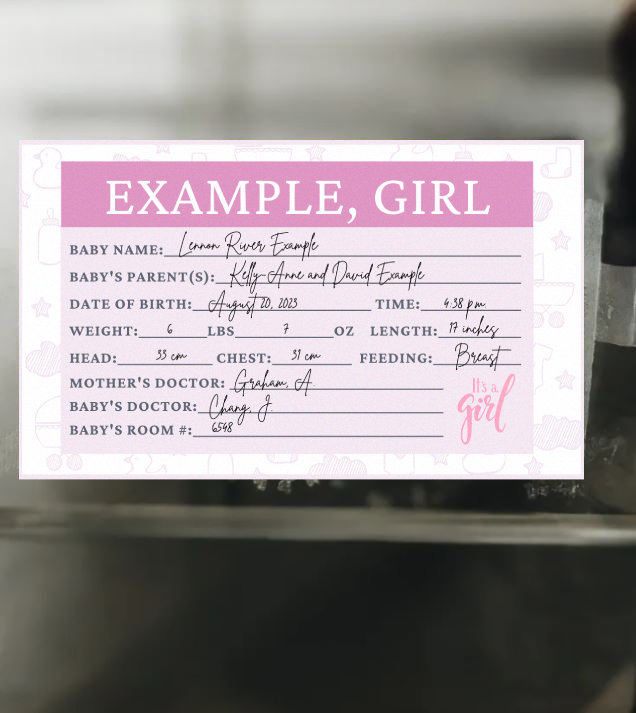 EXAMPLE, GIRL
BABY NAME: Lennon River Example
BABY'S PARENT(S): Kelly-Anne and David Example
DATE OF BIRTH: August 20, 2023 TIME: 4:38 pm
WEIGHT: 6 LBS 7 OZ LENGTH: 17 inches
HEAD: 33 cm CHEST: 31 cm FEEDING: Breast
MOTHER'S DOCTOR: Graham, A.
BABY'S DOCTOR: Chang, J.
BABY'S ROOM #: 6548
It's a
girl